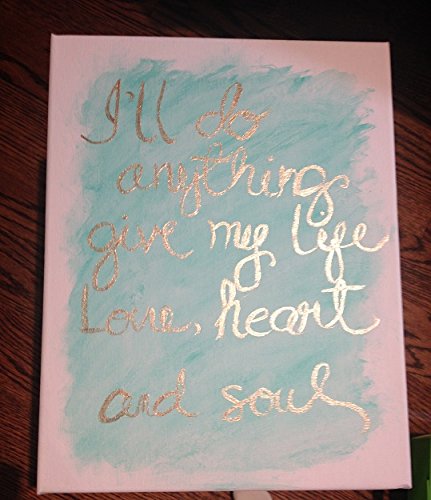 I'll do
anything
give my life
Love, heart
and soul